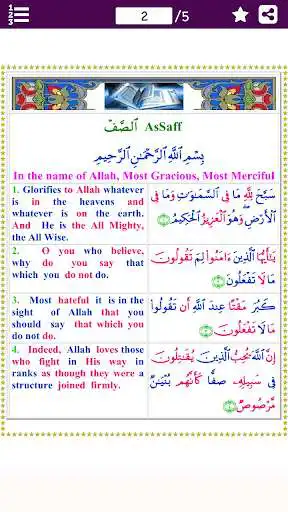 123
2 /5
الصَّفّ AsSaff
بِسْمِ اللَّهِ الرَّحْمَٰنِ الرَّحِيمِ
In the name of Allah, Most Gracious, Most Merciful
1. Glorifies to Allah whatever
is in the heavens and
whatever is on the earth.
And He is the All Mighty,
the All Wise.
سَبَّحَ لِلَّهِ مَا فِي السَّمَاوَاتِ وَمَا فِي
الْأَرْضِ وَهُوَ الْعَزِيزُ الْحَكِيمُ ۝١
2. O you who believe,
why do you say that
which you do not do.
يَا أَيُّهَا الَّذِينَ ءَامَنُوا لِمَ تَقُولُونَ
مَا لَا تَفْعَلُونَ ۝٢
3. Most hateful it is in the
sight of Allah that you
should say that which you
do not do.
كَبُرَ مَقْتًا عِندَ اللَّهِ أَن تَقُولُوا
مَا لَا تَفْعَلُونَ ۝٣
4. Indeed, Allah loves those
who fight in His way in
ranks as though they were a
structure joined firmly.
إِنَّ اللَّهَ يُحِبُّ الَّذِينَ يُقَاتِلُونَ
فِي سَبِيلِهِ صَفًّا كَأَنَّهُم بُنْيَانٌ
مَّرْصُوصٌ ۝٤